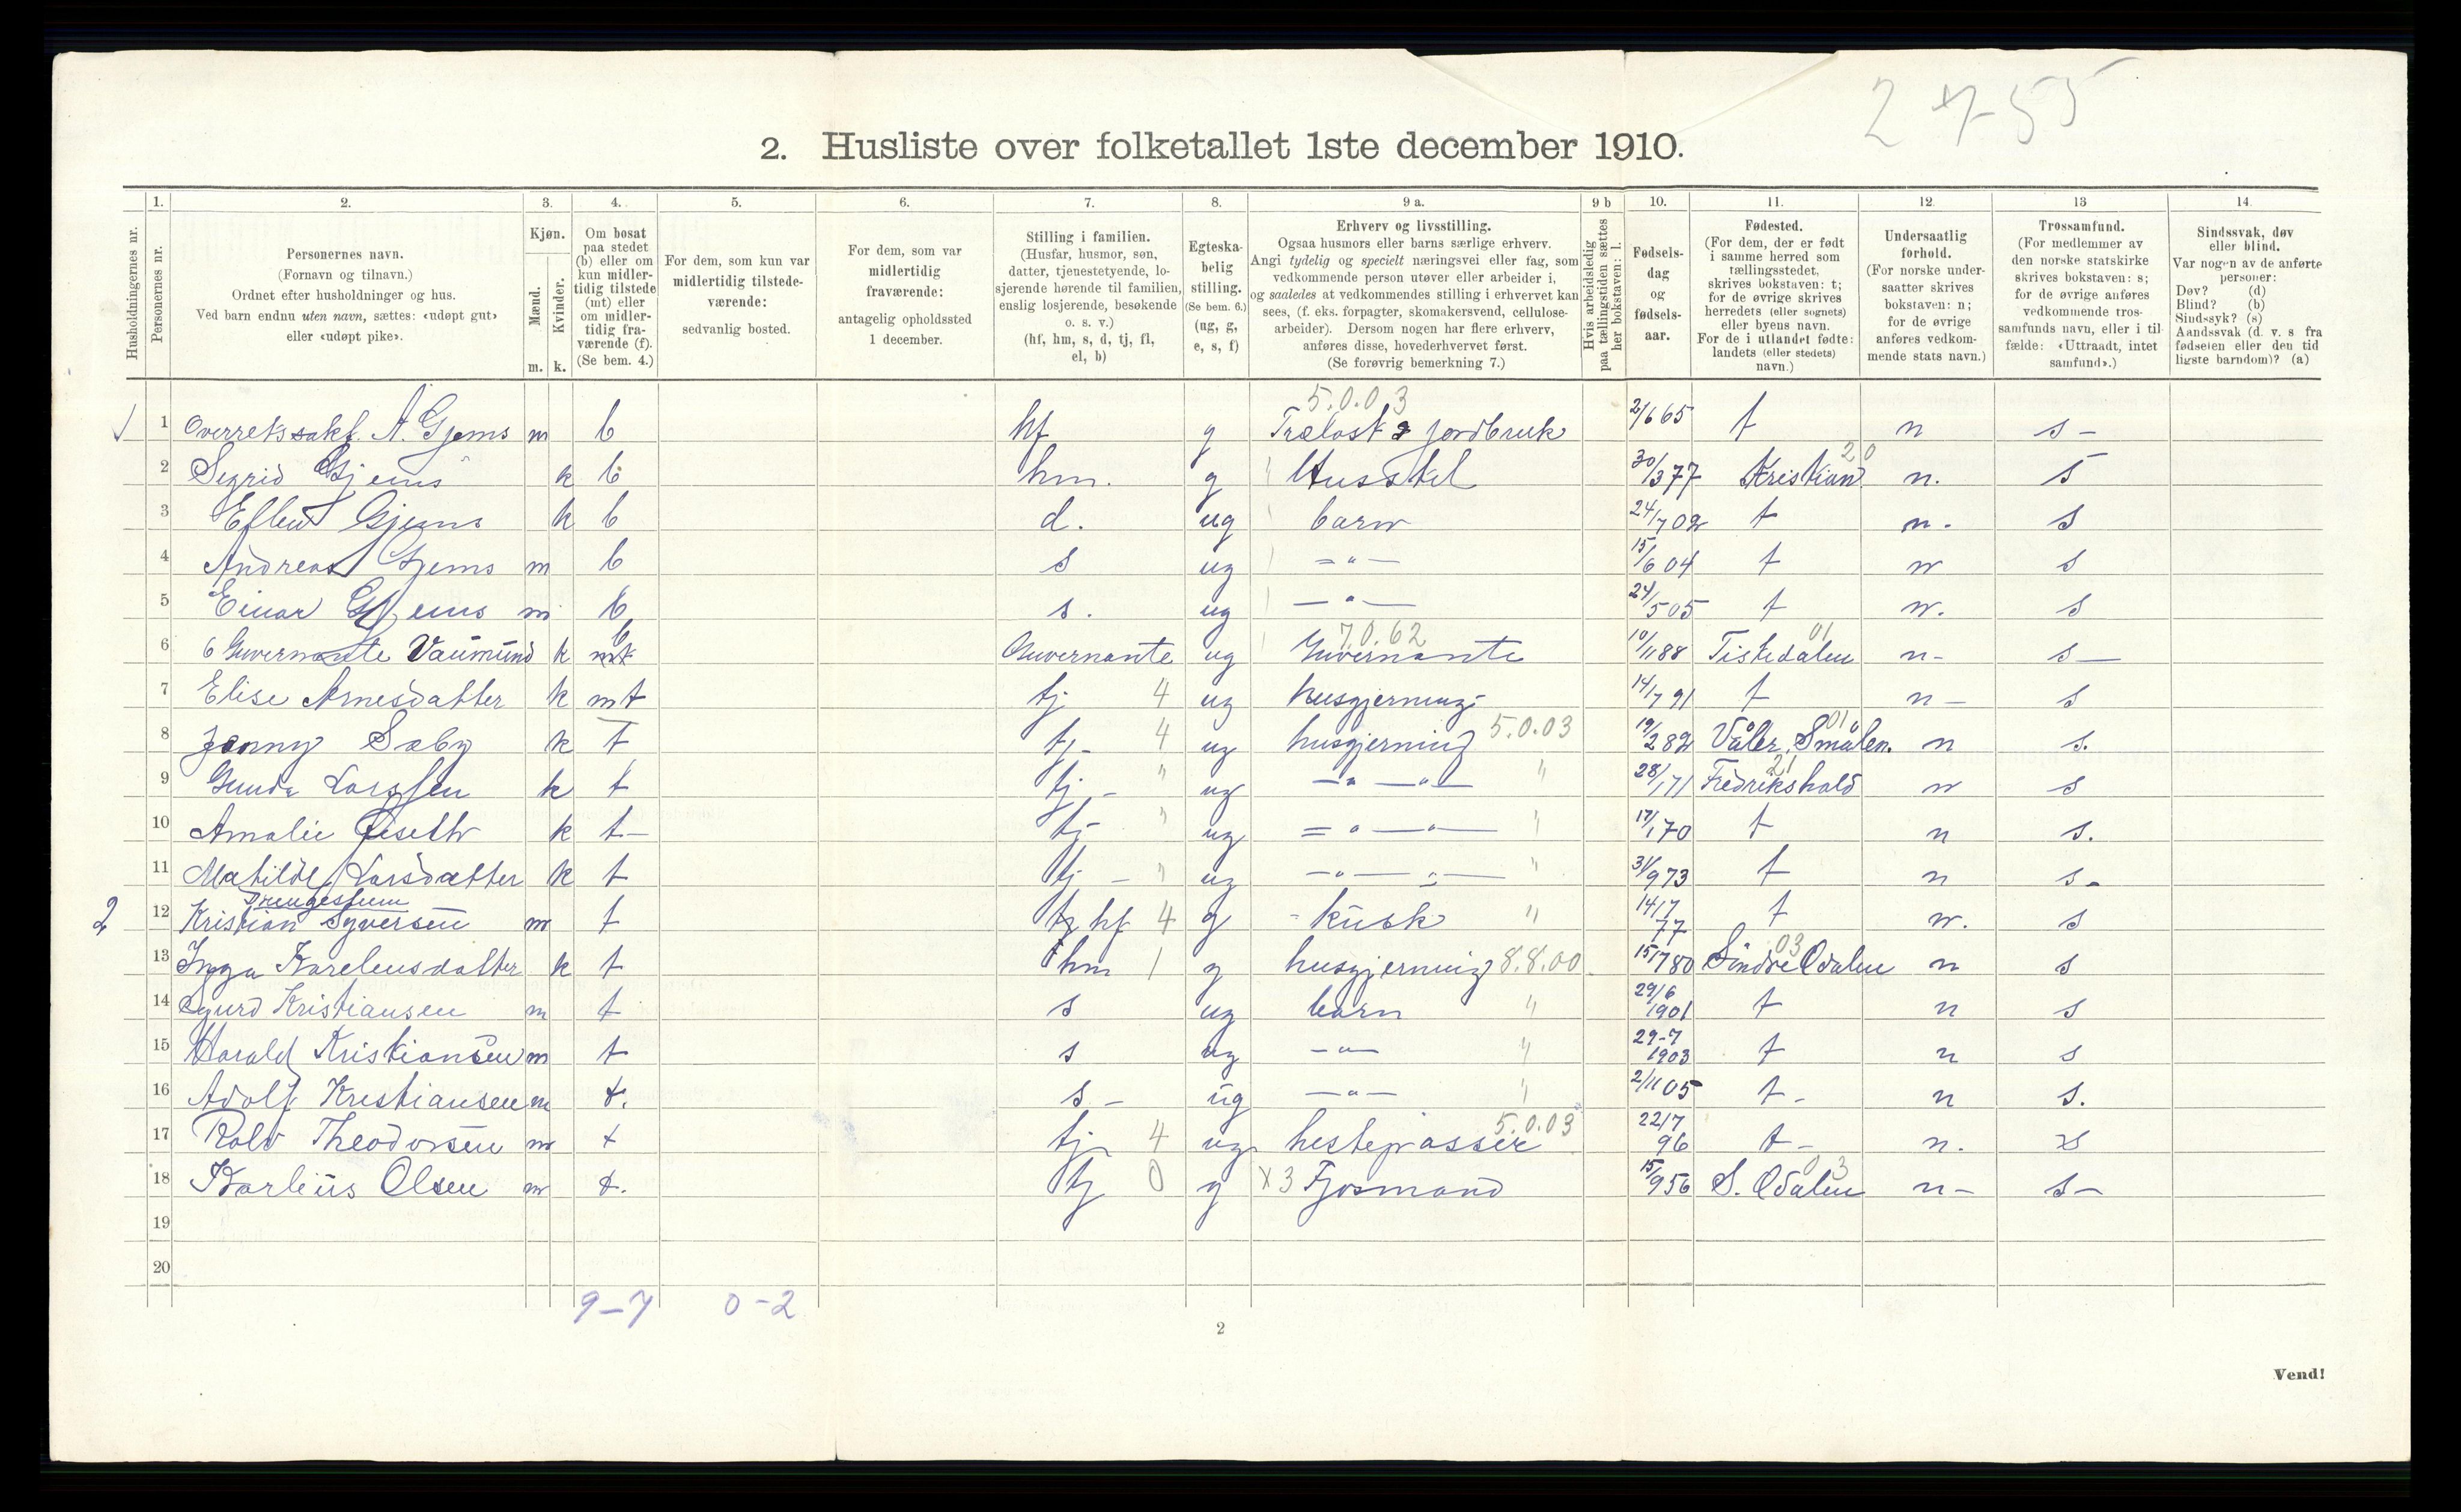 2755
2. Husliste over folketallet 1ste december 1910.
Husholdningernes nr.
1. Personernes nr.
2. Personernes navn.
(Fornavn og tilnavn.)
Ordnet efter husholdninger og hus.
Ved barn endnu uten navn, sættes: «udøpt gut»
eller «udøpt pike».
3. Kjøn.
Mænd. m.
Kvinder. k.
4. Om bosat
paa stedet
(b) eller om
kun midler-
tidig tilstede
(mt) eller
om midler-
tidig fra-
værende (f).
(Se bem. 4.)
5. For dem, som kun var
midlertidig tilstede-
værende:
sedvanlig bosted.
6. For dem, som var
midlertidig
fraværende:
antagelig opholdssted
1 december.
7. Stilling i familien.
(Husfar, husmor, søn,
datter, tjenestetyende, lo-
sjerende hørende til familien,
enslig losjerende, besøkende
o. s. v.)
(hf, hm, s, d, tj, fl,
el, b)
8. Egteska-
belig
stilling.
(Se bem. 6.)
(ug, g,
e, s, f)
9 a. Erhverv og livsstilling.
Ogsaa husmors eller barns særlige erhverv.
Angi tydelig og specielt næringsvei eller fag, som
vedkommende person utøver eller arbeider i,
og saaledes at vedkommendes stilling i erhvervet kan
sees, (f. eks. forpagter, skomakersvend, cellulose-
arbeider). Dersom nogen har flere erhverv,
anføres disse, hovederhvervet først.
(Se forøvrig bemerkning 7.)
9 b Hvis arbeidsledig
paa tællingstiden sættes
her bokstaven: l.
10. Fødsels-
dag
og
fødsels-
aar.
11. Fødested.
(For dem, der er født
i samme herred som
tællingsstedet,
skrives bokstaven: t;
for de øvrige skrives
herredets (eller sognets)
eller byens navn.
For de i utlandet fødte:
landets (eller stedets)
navn.)
12. Undersaatlig
forhold.
(For norske under-
saatter skrives
bokstaven: n;
for de øvrige
anføres vedkom-
mende stats navn.)
13 Trossamfund.
(For medlemmer av
den norske statskirke
skrives bokstaven: s;
for de øvrige anføres
vedkommende tros-
samfunds navn, eller i til-
fælde: «Uttraadt, intet
samfund».)
14. Sindssvak, døv
eller blind.
Var nogen av de anførte
personer:
Døv? (d)
Blind? (b)
Sindssyk? (s)
Aandssvak (d. v. s fra
fødselen eller den tid
ligste barndom)? (a)
5.0.03
1 Overretssakf. A. Gjems m b hf g Trælast & jordbruk 2/6 65 t n s -
20
2 Sigrid Gjems k b hm. g Husstel 30/3 77 Kristian n. s
3 Gjems k b d. ug barn 24/7 02 t n. s
4 Andreas Gjems m b s ug - " - 15/6 04 t n s
5 Einar Gjems m b s. ug - " - 24/5 05 t n. s
b 7.0.62 01
6 Guvernante Vaumund k mt Guvernante ug Guvernante 10/11 88 Tistedalen n - s -
7 Elise Arnesdatter k mt tj 4 ug husgjerning 14/7 91 t n - s
8 Jenny Sæby k t tj - 4 ug husgjerning 5.0.03 19/2 82 Våler, Smålen. 01 n s.
21
9 Gunda Larssen k t tj - " ug - " - " - " 28/1 71 Fredrikshald n s
10 Amalie k t - tj - " ug - " - " - " 17/1 70 t n s.
11 Matilde Larsdatter k t tj - " ug - " - " - " 31/9 73 t n s.
Drengestuen
2 12 Kristian Syversen m t tj hf 4 g - kusk " 14/7 77 t n. s
03
13 Inga Karelensdatter k t hm 1 g husgjerning 8.8.00 15/7 80 Søndre Odalen n s
14 Sigurd Kristiansen m t s ug barn " 29/6 1901 t n s
15 Harald Kristiansen m t s ug - " - " 29-7 1903 t n s
16 Adolf Kristiansen m t. s - ug - " - " 2/11 05 t - n s.
17 Rolv Theodorsen m t tj 4 ug hestepasser 5.0.03 22/7 96 t - n. s
03
18 Karlius Olsen m t. tj 0 g x3 Fjosmand 15/9 56 S. Odalen n - s -
19
20
9-7 0-2
2
Vend!